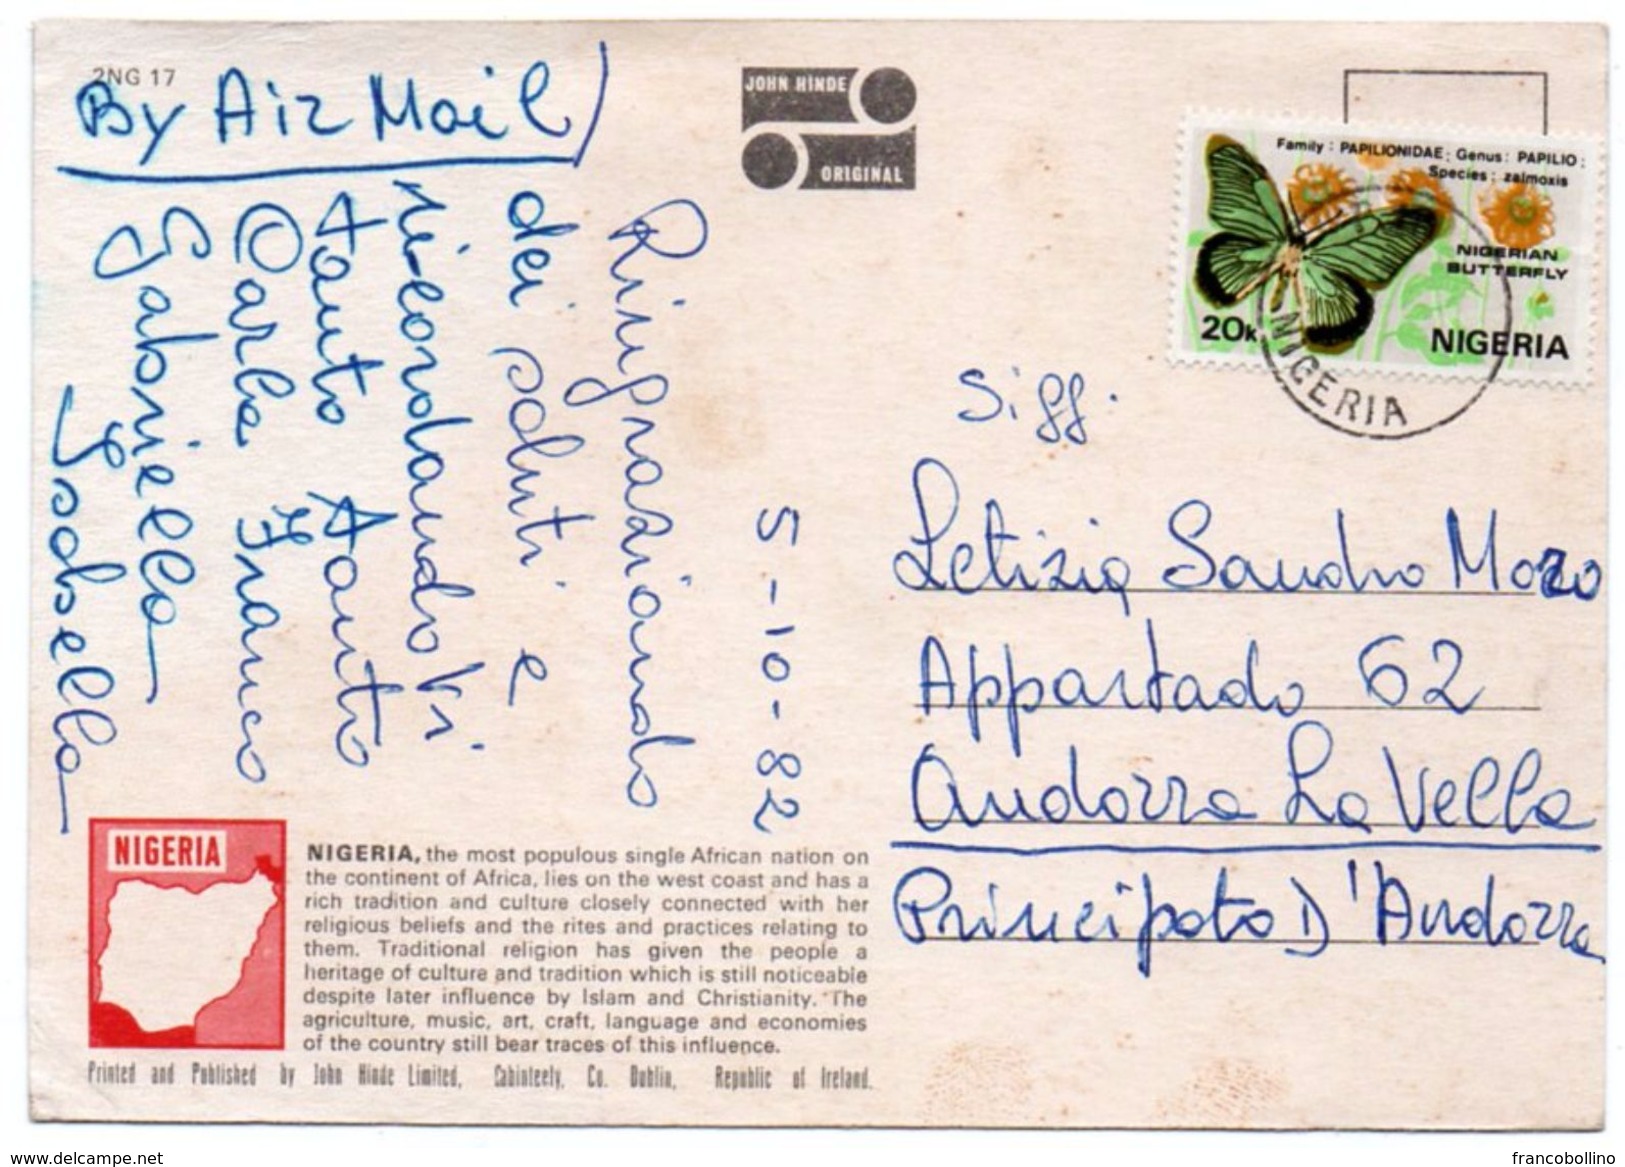 2NG 17
By Air Mail
JOHN HINDE
ORIGINAL
Family : PAPILIONIDAE; Genus: PAPILIO;
Species: zalmoxis
NIGERIAN
BUTTERFLY
20k
NIGERIA
NIGERIA
5-10-82
Ringraziando
dei saluti e
ricordandoVi
tanto tanto
Carla Franco
Gabriella
Isabella
Sigg.
Letizia Sandro Moro
Appartado 62
Andorra La Vella
Principato D'Andorra
NIGERIA
NIGERIA, the most populous single African nation on
the continent of Africa, lies on the west coast and has a
rich tradition and culture closely connected with her
religious beliefs and the rites and practices relating to
them. Traditional religion has given the people a
heritage of culture and tradition which is still noticeable
despite later influence by Islam and Christianity. The
agriculture, music, art, craft, language and economies
of the country still bear traces of this influence.
Printed and Published by John Hinde Limited, Cabinteely, Co. Dublin, Republic of Ireland.
www.delcampe.net
francobollino